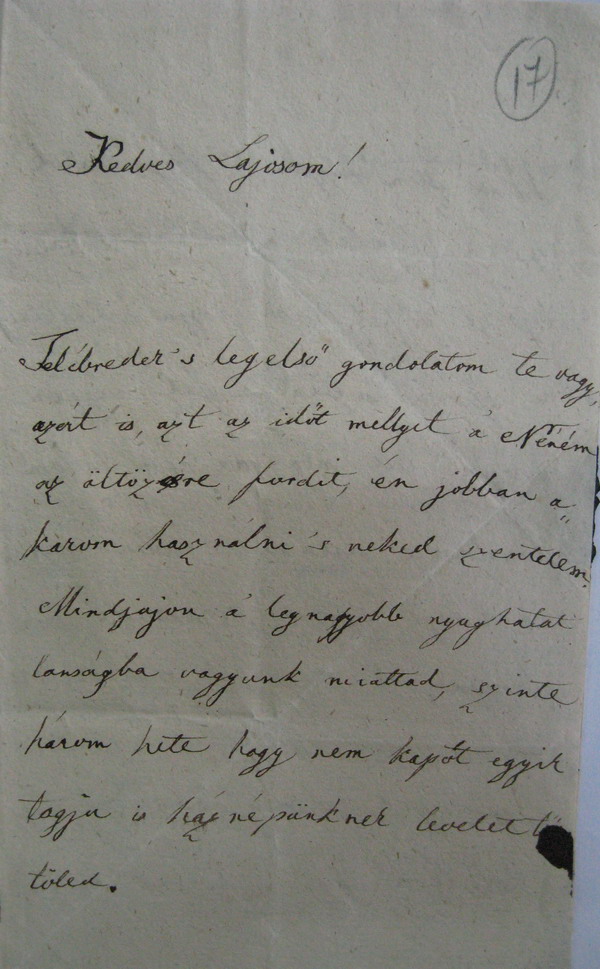 17
Kedves Lajosom!
Felébredek 's legelső gondolatom te vagy,
azért is, azt az időt mellyet a' Néném
az öltözésre fordit, én jobban a=
karom használni 's neked szentelem.
Mindjujon a legnagyobb nyughatat
lanságba vagyunk miattad, szinte
három hete hogy nem kapot egyik
tagja is háznépünknek levelet
töled.